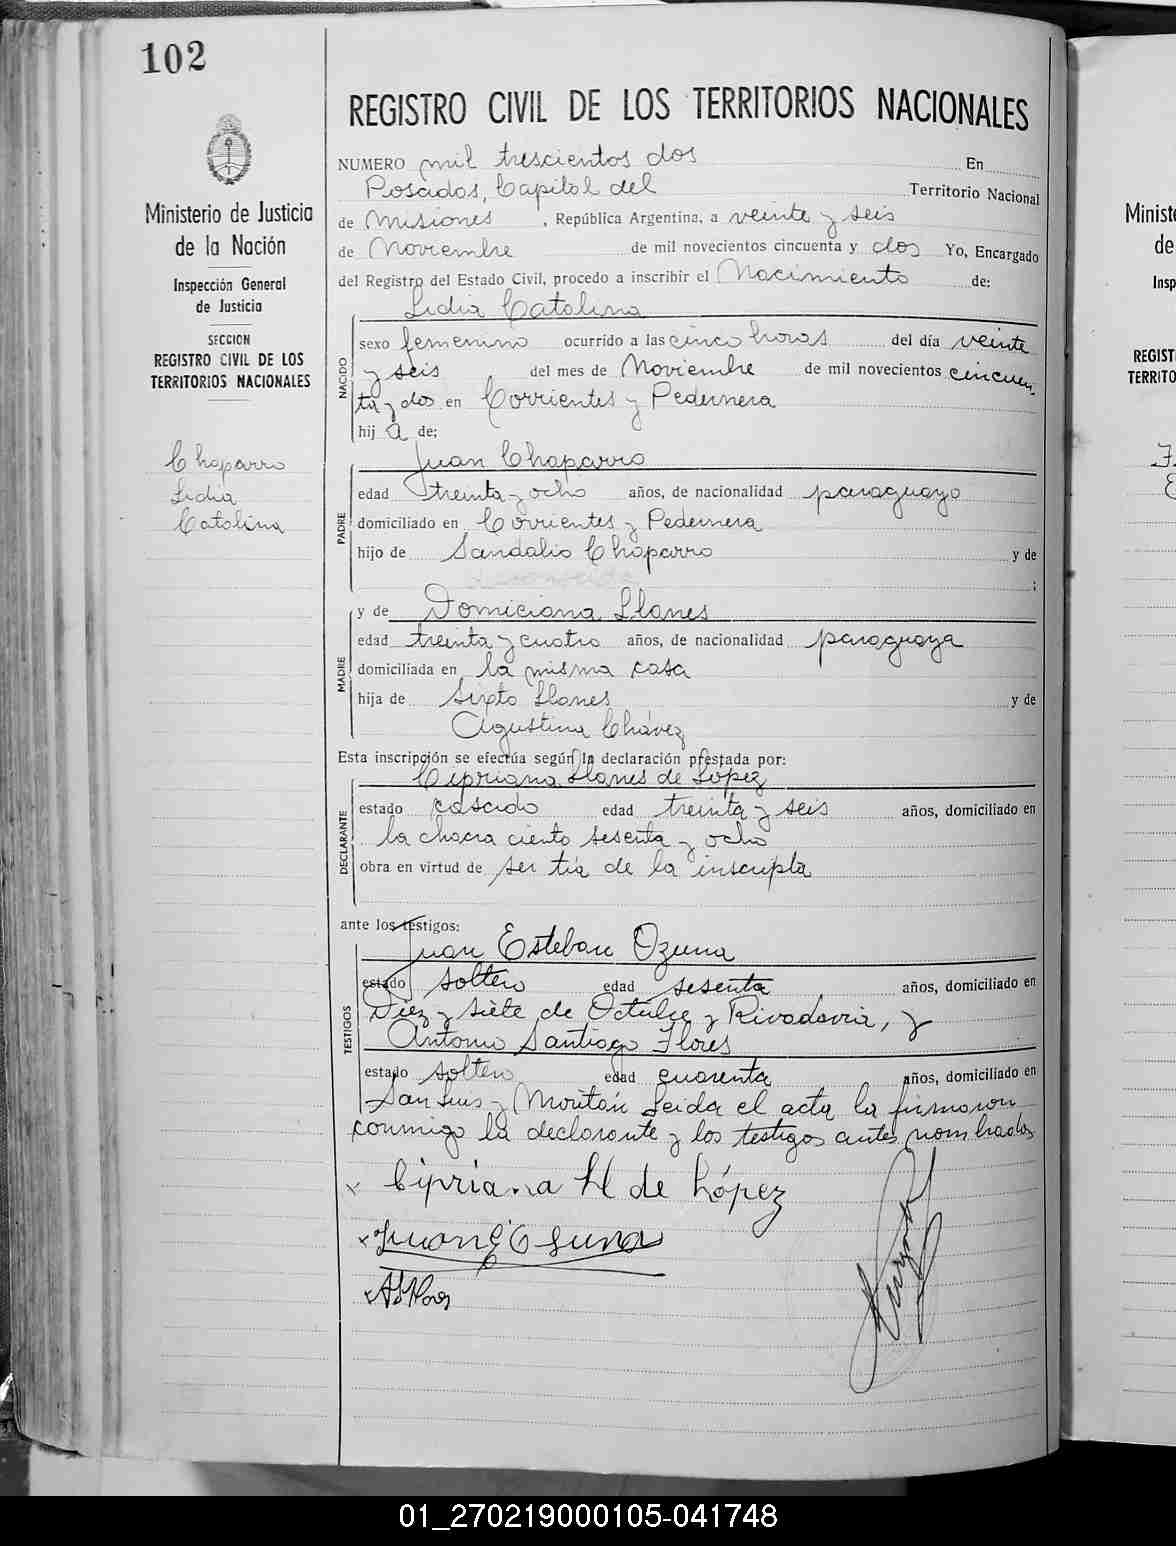 102
Ministerio de Justicia
de la Nación
Inspección General
de Justicia
SECCION
REGISTRO CIVIL DE LOS
TERRITORIOS NACIONALES
Chaparro
Lidia
Catalina
REGISTRO CIVIL DE LOS TERRITORIOS NACIONALES
NUMERO mil trescientos dos En
Posadas, Capital del Territorio Nacional
de Misiones, República Argentina, a veinte y seis
de Noviembre de mil novecientos cincuenta y dos Yo, Encargado
del Registro del Estado Civil, procedo a inscribir el Nacimiento de:
Lidia Catalina
NACIDO
sexo femenino ocurrido a las cinco horas del día veinte
y seis del mes de Noviembre de mil novecientos cincuen
ta y dos en Corrientes y Pedernera
hij a de;
Juan Chaparro
PADRE
edad treinta y ocho años, de nacionalidad paraguayo
domiciliado en Corrientes y Pedernera
hijo de Sandalio Chaparro y de
;
y de Domiciana Llanes
MADRE
edad treinta y cuatro años, de nacionalidad paraguaya
domiciliada en la misma casa
hija de Sixto Llanes y de
Agustina Chávez
Esta inscripción se efectúa según la declaración prestada por:
Cipriana Llanes de López
DECLARANTE
estado casado edad treinta y seis años, domiciliado en
la chacra ciento sesenta y ocho
obra en virtud de ser tía de la inscripta
ante los testigos:
Juan Esteban Ozuna
TESTIGOS
estado soltero edad sesenta años, domiciliado en
Diez y siete de Octubre y Rivadavia, y
Antonio Santiago Flores
estado soltero edad cuarenta años, domiciliado en
San Luis y Moritán Leida el acta la firmaron
conmigo la declarante y los testigos antes nombrados
x Cipriana Ll de López
x Juan E Osuna
x
Minist
de
Insp
REGIST
TERRITO
01_270219000105-041748